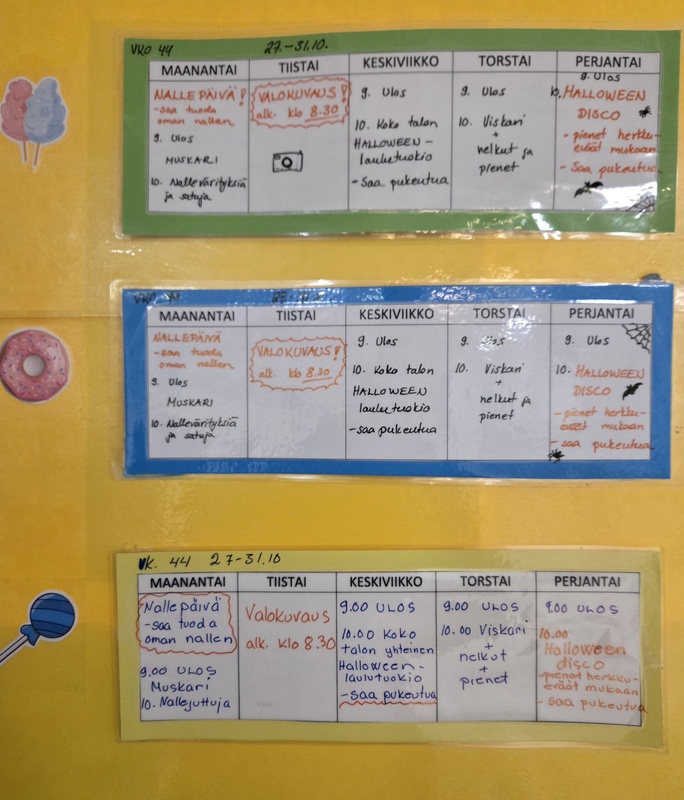 VKO 44 27.-31.10.
MAANANTAI TIISTAI KESKIVIIKKO TORSTAI PERJANTAI
NALLEPÄIVÄ!
-saa tuoda
oman nallen
9. Ulos
MUSKARI
10. Nallevärityksiä
ja satuja
VALOKUVAUS!
alk. klo 8.30
9. Ulos
10. Koko talon
HALLOWEEN-
laulutuokio
-Saa pukeutua
9. Ulos
10. Viskari
+
nelkut ja
pienet
9. Ulos
10. HALLOWEEN
DISCO
- pienet herkku-
eväät mukaan
- Saa pukeutua
MAANANTAI TIISTAI KESKIVIIKKO TORSTAI PERJANTAI
NALLEPÄIVÄ
-saa tuoda
oman nallen
9. Ulos
MUSKARI
10. Nallevärityksiä
ja satuja
VALOKUVAUS!
alk. klo 8.30
9. Ulos
10. Koko talon
HALLOWEEN
laulutuokio
-saa pukeutua
9. Ulos
10. Viskari
+
nelkut ja
pienet
9. Ulos
10. HALLOWEEN
DISCO
-pienet herkku-
eväät mukaan
- saa pukeutua
VK. 44 27-31.10
MAANANTAI TIISTAI KESKIVIIKKO TORSTAI PERJANTAI
Nallepäivä
-saa tuoda
oman nallen
9.00 ULOS
Muskari
10. Nallejuttuja
Valokuvaus
alk. klo 8.30
9.00 ULOS
10.00 Koko
talon yhteinen
Halloween-
laulutuokio
-saa pukeutua
9.00 ULOS
10.00 Viskari
+
nelkut
+
pienet
9.00 ULOS
10.00
Halloween
disco
-pienet herkku-
eväät mukaan
- saa pukeutua